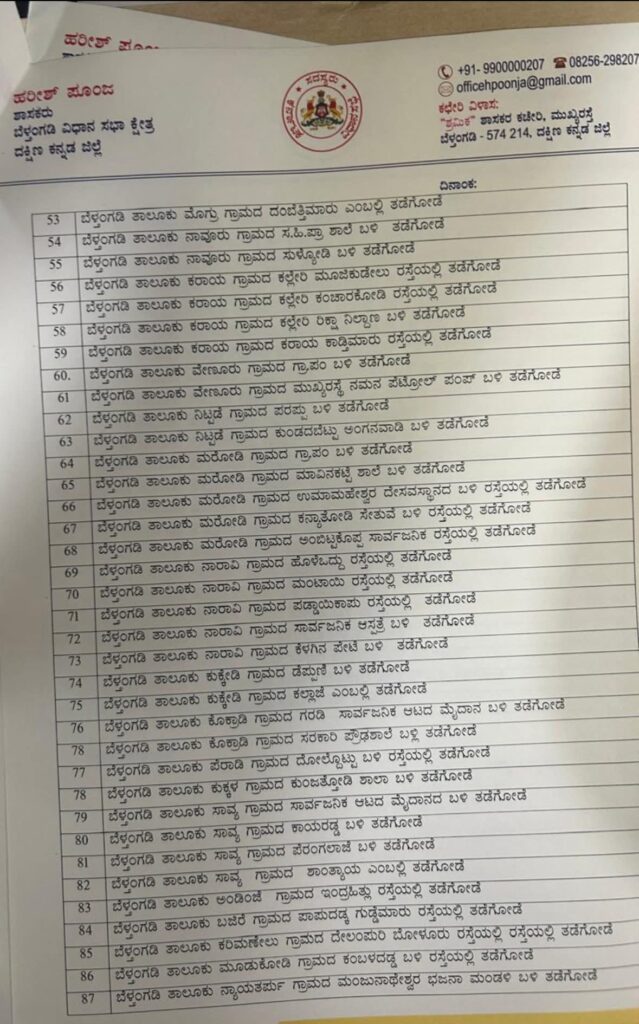 ಹರೀಶ್ ಪೂಂಜ
ಹರೀಶ್ ಪೂಂಜ
ಶಾಸಕರು
ಬೆಳ್ತಂಗಡಿ ವಿಧಾನ ಸಭಾ ಕ್ಷೇತ್ರ
ದಕ್ಷಿಣ ಕನ್ನಡ ಜಿಲ್ಲೆ
ಸದಸ್ಯರು
+91- 9900000207 08256-298207
officehpoonja@gmail.com
ಕಛೇರಿ ವಿಳಾಸ:
"ಶ್ರಮಿಕ" ಶಾಸಕರ ಕಚೇರಿ, ಮುಖ್ಯರಸ್ತೆ
ಬೆಳ್ತಂಗಡಿ - 574 214, ದಕ್ಷಿಣ ಕನ್ನಡ ಜಿಲ್ಲೆ
ದಿನಾಂಕ:
53 ಬೆಳ್ತಂಗಡಿ ತಾಲೂಕು ಮೊಗ್ರು ಗ್ರಾಮದ ದಂಬೆತ್ತಿಮಾರು ಎಂಬಲ್ಲಿ ತಡೆಗೋಡೆ
54 ಬೆಳ್ತಂಗಡಿ ತಾಲೂಕು ನಾವೂರು ಗ್ರಾಮದ ಸ.ಹಿ.ಪ್ರಾ ಶಾಲೆ ಬಳಿ ತಡೆಗೋಡೆ
55 ಬೆಳ್ತಂಗಡಿ ತಾಲೂಕು ನಾವೂರು ಗ್ರಾಮದ ಸುಳ್ಯೋಡಿ ಬಳಿ ತಡೆಗೋಡೆ
56 ಬೆಳ್ತಂಗಡಿ ತಾಲೂಕು ಕರಾಯ ಗ್ರಾಮದ ಕಲ್ಲೇರಿ ಮೂಜಿಕುಡೇಲು ರಸ್ತೆಯಲ್ಲಿ ತಡೆಗೋಡೆ
57 ಬೆಳ್ತಂಗಡಿ ತಾಲೂಕು ಕರಾಯ ಗ್ರಾಮದ ಕಲ್ಲೇರಿ ಕಂಚಾರಕೋಡಿ ರಸ್ತೆಯಲ್ಲಿ ತಡೆಗೋಡೆ
58 ಬೆಳ್ತಂಗಡಿ ತಾಲೂಕು ಕರಾಯ ಗ್ರಾಮದ ಕಲ್ಲೇರಿ ರಿಕ್ಷಾ ನಿಲ್ದಾಣ ಬಳಿ ತಡೆಗೋಡೆ
59 ಬೆಳ್ತಂಗಡಿ ತಾಲೂಕು ಕರಾಯ ಗ್ರಾಮದ ಕರಾಯ ಕಾಡ್ತಿಮಾರು ರಸ್ತೆಯಲ್ಲಿ ತಡೆಗೋಡೆ
60. ಬೆಳ್ತಂಗಡಿ ತಾಲೂಕು ವೇಣೂರು ಗ್ರಾಮದ ಗ್ರಾ.ಪಂ ಬಳಿ ತಡೆಗೋಡೆ
61 ಬೆಳ್ತಂಗಡಿ ತಾಲೂಕು ವೇಣೂರು ಗ್ರಾಮದ ಮುಖ್ಯರಸ್ಥೆ ನಮನ ಪೆಟ್ರೋಲ್ ಪಂಪ್ ಬಳಿ ತಡೆಗೋಡೆ
62 ಬೆಳ್ತಂಗಡಿ ತಾಲೂಕು ನಿಟ್ಟಡೆ ಗ್ರಾಮದ ಪರಪ್ಪು ಬಳಿ ತಡೆಗೋಡೆ
63 ಬೆಳ್ತಂಗಡಿ ತಾಲೂಕು ನಿಟ್ಟಡೆ ಗ್ರಾಮದ ಕುಂಡದಬೆಟ್ಟು ಅಂಗನವಾಡಿ ಬಳಿ ತಡೆಗೋಡೆ
64 ಬೆಳ್ತಂಗಡಿ ತಾಲೂಕು ಮರೋಡಿ ಗ್ರಾಮದ ಗ್ರಾ.ಪಂ ಬಳಿ ತಡೆಗೋಡೆ
65 ಬೆಳ್ತಂಗಡಿ ತಾಲೂಕು ಮರೋಡಿ ಗ್ರಾಮದ ಮಾವಿನಕಟ್ಟೆ ಶಾಲೆ ಬಳಿ ತಡೆಗೋಡೆ
66 ಬೆಳ್ತಂಗಡಿ ತಾಲೂಕು ಮರೋಡಿ ಗ್ರಾಮದ ಉಮಾಮಹೇಶ್ವರ ದೇಸವಸ್ಥಾನದ ಬಳಿ ರಸ್ತೆಯಲ್ಲಿ ತಡೆಗೋಡೆ
67 ಬೆಳ್ತಂಗಡಿ ತಾಲೂಕು ಮರೋಡಿ ಗ್ರಾಮದ ಕನ್ಯಾತೋಡಿ ಸೇತುವೆ ಬಳಿ ರಸ್ತೆಯಲ್ಲಿ ತಡೆಗೋಡೆ
68 ಬೆಳ್ತಂಗಡಿ ತಾಲೂಕು ಮರೋಡಿ ಗ್ರಾಮದ ಅಂಬಿಟ್ಟಕೊಪ್ಪ ಸಾರ್ವಜನಿಕ ರಸ್ತೆಯಲ್ಲಿ ತಡೆಗೋಡೆ
69 ಬೆಳ್ತಂಗಡಿ ತಾಲೂಕು ನಾರಾವಿ ಗ್ರಾಮದ ಹೊಳೆಒದ್ದು ರಸ್ತೆಯಲ್ಲಿ ತಡೆಗೋಡೆ
70 ಬೆಳ್ತಂಗಡಿ ತಾಲೂಕು ನಾರಾವಿ ಗ್ರಾಮದ ಮಂಟಾಯಿ ರಸ್ತೆಯಲ್ಲಿ ತಡೆಗೋಡೆ
71 ಬೆಳ್ತಂಗಡಿ ತಾಲೂಕು ನಾರಾವಿ ಗ್ರಾಮದ ಪಡ್ಡಾಯಿಕಾಪು ರಸ್ತೆಯಲ್ಲಿ ತಡೆಗೋಡೆ
72 ಬೆಳ್ತಂಗಡಿ ತಾಲೂಕು ನಾರಾವಿ ಗ್ರಾಮದ ಸಾರ್ವಜನಿಕ ಆಸ್ಪತ್ರೆ ಬಳಿ ತಡೆಗೋಡೆ
73 ಬೆಳ್ತಂಗಡಿ ತಾಲೂಕು ನಾರಾವಿ ಗ್ರಾಮದ ಕೆಳಗಿನ ಪೇಟೆ ಬಳಿ ತಡೆಗೋಡೆ
74 ಬೆಳ್ತಂಗಡಿ ತಾಲೂಕು ಕುಕ್ಕೇಡಿ ಗ್ರಾಮದ ಡೆಪ್ಪುಣಿ ಬಳಿ ತಡೆಗೋಡೆ
75 ಬೆಳ್ತಂಗಡಿ ತಾಲೂಕು ಕುಕ್ಕೇಡಿ ಗ್ರಾಮದ ಕಲ್ಲಾಜೆ ಎಂಬಲ್ಲಿ ತಡೆಗೋಡೆ
76 ಬೆಳ್ತಂಗಡಿ ತಾಲೂಕು ಕೊಕ್ರಾಡಿ ಗ್ರಾಮದ ಗರಡಿ ಸಾರ್ವಜನಿಕ ಆಟದ ಮೈದಾನ ಬಳಿ ತಡೆಗೋಡೆ
78 ಬೆಳ್ತಂಗಡಿ ತಾಲೂಕು ಕೊಕ್ರಾಡಿ ಗ್ರಾಮದ ಸರಕಾರಿ ಪ್ರೌಢಶಾಲೆ ಬಳ್ಳಿ ತಡೆಗೋಡೆ
77 ಬೆಳ್ತಂಗಡಿ ತಾಲೂಕು ಪೆರಾಡಿ ಗ್ರಾಮದ ದೋಲ್ದೊಟ್ಟು ಬಳಿ ರಸ್ತೆಯಲ್ಲಿ ತಡೆಗೋಡೆ
78 ಬೆಳ್ತಂಗಡಿ ತಾಲೂಕು ಕುಕ್ಕಳ ಗ್ರಾಮದ ಕುಂಜತ್ತೋಡಿ ಶಾಲಾ ಬಳಿ ತಡೆಗೋಡೆ
79 ಬೆಳ್ತಂಗಡಿ ತಾಲೂಕು ಸಾವ್ಯ ಗ್ರಾಮದ ಸಾರ್ವಜನಿಕ ಆಟದ ಮೈದಾನದ ಬಳಿ ತಡೆಗೋಡೆ
80 ಬೆಳ್ತಂಗಡಿ ತಾಲೂಕು ಸಾವ್ಯ ಗ್ರಾಮದ ಕಾಯರಡ್ಡ ಬಳಿ ತಡೆಗೋಡೆ
81 ಬೆಳ್ತಂಗಡಿ ತಾಲೂಕು ಸಾವ್ಯ ಗ್ರಾಮದ ಪೆರಂಗಲಾಜೆ ಬಳಿ ತಡೆಗೋಡೆ
82 ಬೆಳ್ತಂಗಡಿ ತಾಲೂಕು ಸಾವ್ಯ ಗ್ರಾಮದ ಶಾಂತ್ಯಾಯ ಎಂಬಲ್ಲಿ ತಡೆಗೋಡೆ
83 ಬೆಳ್ತಂಗಡಿ ತಾಲೂಕು ಅಂಡಿಂಜೆ ಗ್ರಾಮದ ಇಂದ್ರಹಿತ್ಲು ರಸ್ತೆಯಲ್ಲಿ ತಡೆಗೋಡೆ
84 ಬೆಳ್ತಂಗಡಿ ತಾಲೂಕು ಬಜಿರೆ ಗ್ರಾಮದ ಪಾಪುದಡ್ಕ ಗುಡ್ಡೆಮಾರು ರಸ್ತೆಯಲ್ಲಿ ತಡೆಗೋಡೆ
85 ಬೆಳ್ತಂಗಡಿ ತಾಲೂಕು ಕರಿಮಣೇಲು ಗ್ರಾಮದ ದೇಲಂಪುರಿ ಬೋಳೂರು ರಸ್ತೆಯಲ್ಲಿ ರಸ್ತೆಯಲ್ಲಿ ತಡೆಗೋಡೆ
86 ಬೆಳ್ತಂಗಡಿ ತಾಲೂಕು ಮೂಡುಕೋಡಿ ಗ್ರಾಮದ ಕಂಬಳದಡ್ಡ ಬಳಿ ರಸ್ತೆಯಲ್ಲಿ ತಡೆಗೋಡೆ
87 ಬೆಳ್ತಂಗಡಿ ತಾಲೂಕು ನ್ಯಾಯತರ್ಪು ಗ್ರಾಮದ ಮಂಜುನಾಥೇಶ್ವರ ಭಜನಾ ಮಂಡಳಿ ಬಳಿ ತಡೆಗೋಡೆ